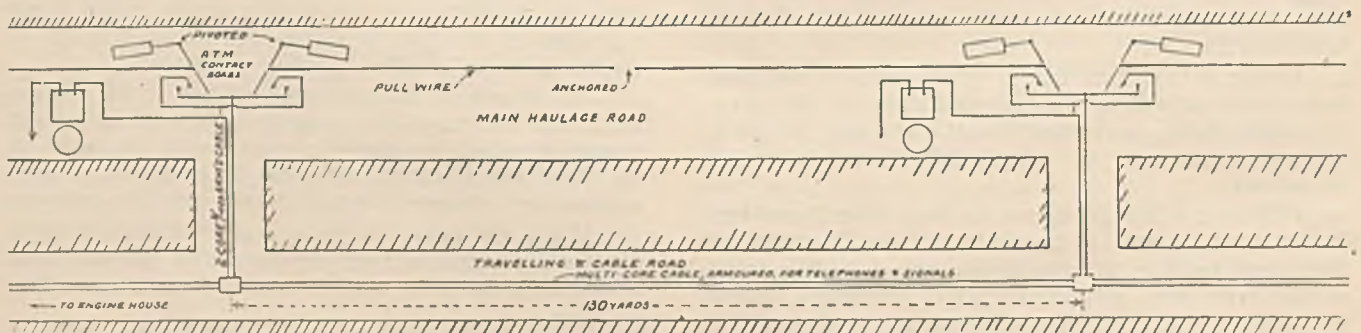 PIVOTED
ATM
CONTACT
BOARDS
PULL WIRE
ANCHORED
MAIN HAULAGE ROAD
TRAVELLING & CABLE ROAD
MULTI-CORE CABLE, ARMOURED, FOR TELEPHONES & SIGNALS
← TO ENGINE HOUSE
130 YARDS